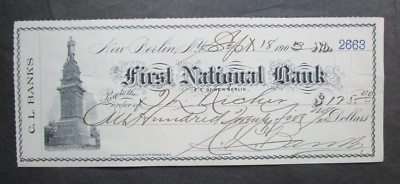 New Berlin, N.Y. Sept 18 1903 No. 2663
First National Bank
OF NEW BERLIN.
Pay to the order of $175.00
One Hundred Seventy five Dollars
C. L. Banks
C. L. BANKS